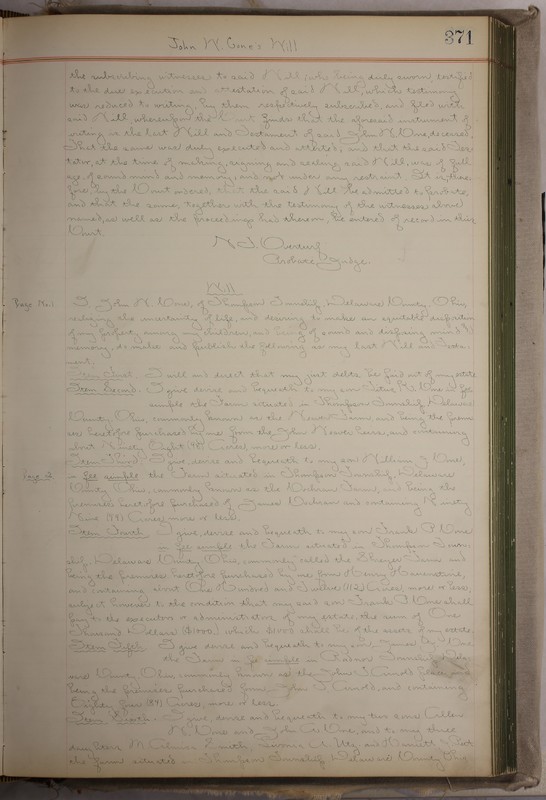 John W. Cone's Will
371
the subscribing witnesses to said Will, who being duly sworn, testified
to the due execution and attestation of said Will, which testimony
was reduced to writing, by them respectively subscribed, and filed with
said Will, whereupon the Court finds that the aforesaid instrument of
writing is the last Will and Testament of said John W. Cone, deceased,
that the same was duly executed and attested; and that the said Tes-
tator, at the time of making, signing and sealing said Will, was of full
age, of sound mind and memory, and not under any restraint. It is, there-
fore, by the Court ordered, that the said Will be admitted to Probate,
and that the same, together with the testimony of the witnesses above
named, as well as the proceedings had thereon, be entered of record in this
Court.
Probate Judge.
Will
Page No. 1
I, John W. Cone, of Thompson Township, Delaware County, Ohio
realizing the uncertainty of life, and desiring to make an equitable
of my property among my children, and being of sound and disposing mind &
memory, do make and publish the following as my last Will and Testa-
ment.
Item First. I will and direct that my just debts be paid out of my estate
Item Second. I give devise and bequeath to my son Cone in fee
simple the Farm situated in Thompson Township, Delaware
County, Ohio, commonly known as the Farm, and being the farm
heretofore purchased by me from the John heirs, and containing
about Ninety Eight (98) Acres, more or less.
Item Third. I give, devise and bequeath to my son William Cone,
Page 2
in fee simple the Farm situated in Thompson Township, Delaware
County Ohio, commonly known as the Farm, and being the
premises heretofore purchased of James and containing Ninety
(9) Acres, more or less.
Item Fourth. I give, devise and bequeath to my son Frank P. Cone
in fee simple the Farm situated in Thompson Town-
ship, Delaware County Ohio, commonly called the Farm and
being the premises heretofore purchased by me from Henry
and containing about One Hundred and Twelve (112) Acres, more or less,
subject however to the condition that my said son Frank P. Cone shall
pay to the executor or administrator of my estate the sum of One
Thousand Dollars ($1000) which $1000 shall be of the assets of my estate.
Item Fifth. I give devise and bequeath to my son, Cone
the Farm in fee simple in Radnor Township, Dela-
ware County Ohio, commonly known as the John Farm, and
being the premises purchased from John and containing
Eighty four (84) Acres, more or less.
Item Sixth. I give, devise and bequeath to my two sons
Cone and John A. Cone, and to my three
daughters
the farm situated in Thompson Township Delaware County Ohio